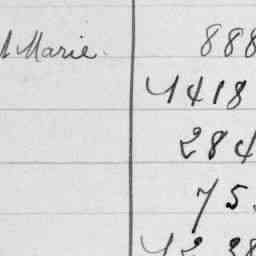 Marie. 888
1418
284
75